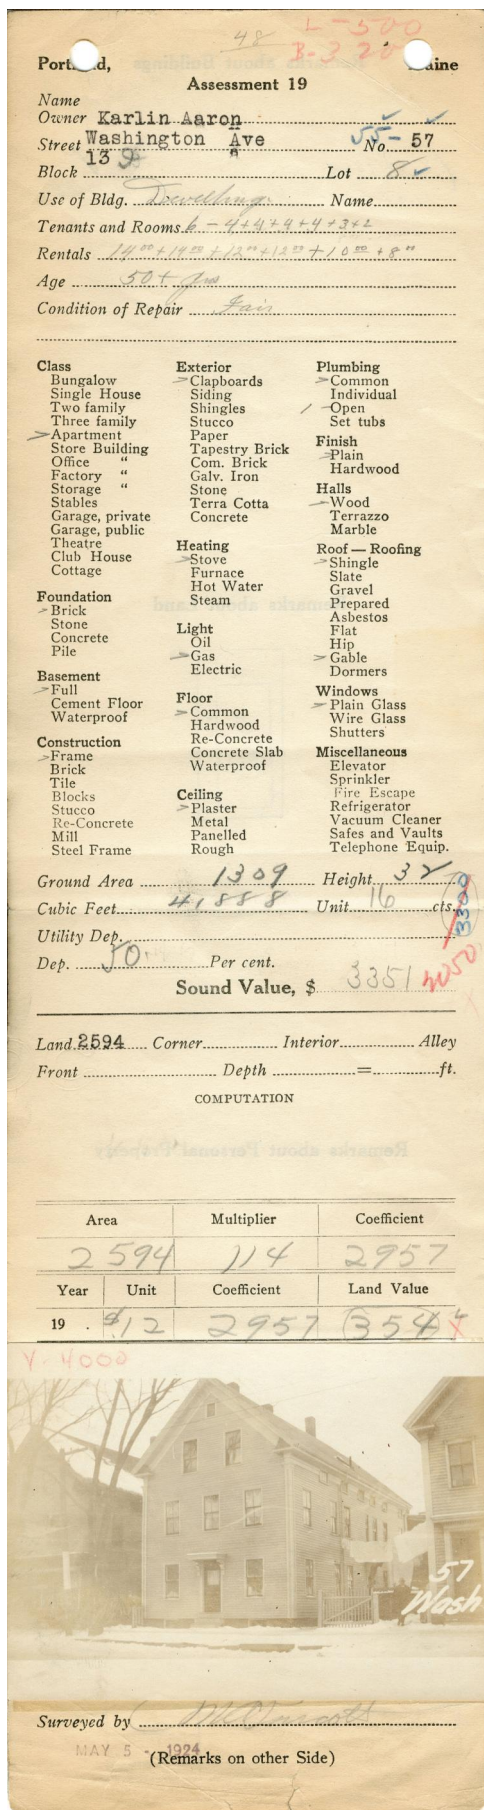 48
L-500
B-320
Portland, Maine
Assessment 19
Name
Owner Karlin Aaron
Street Washington Ave No. 55-57
Block 13 Lot 8
Use of Bldg. Dwelling Name
Tenants and Rooms 6 - 4+4+4+4+3+2
Rentals 14⁰⁰+14⁰⁰+12⁰⁰+12⁰⁰+10⁰⁰+8⁰⁰
Age 50+ yrs
Condition of Repair Fair
Class
Bungalow
Single House
Two family
Three family
Apartment
Store Building
Office "
Factory "
Storage "
Stables
Garage, private
Garage, public
Theatre
Club House
Cottage
Foundation
Brick
Stone
Concrete
Pile
Basement
Full
Cement Floor
Waterproof
Construction
Frame
Brick
Tile
Blocks
Stucco
Re-Concrete
Mill
Steel Frame
Exterior
Clapboards
Siding
Shingles
Stucco
Paper
Tapestry Brick
Com. Brick
Galv. Iron
Stone
Terra Cotta
Concrete
Heating
Stove
Furnace
Hot Water
Steam
Light
Oil
Gas
Electric
Floor
Common
Hardwood
Re-Concrete
Concrete Slab
Waterproof
Ceiling
Plaster
Metal
Panelled
Rough
Plumbing
Common
Individual
Open
Set tubs
Finish
Plain
Hardwood
Halls
Wood
Terrazzo
Marble
Roof — Roofing
Shingle
Slate
Gravel
Prepared
Asbestos
Flat
Hip
Gable
Dormers
Windows
Plain Glass
Wire Glass
Shutters
Miscellaneous
Elevator
Sprinkler
Fire Escape
Refrigerator
Vacuum Cleaner
Safes and Vaults
Telephone Equip.
Ground Area 1309 Height 32
Cubic Feet 41,888 Unit 16 cts.
3300
Utility Dep.
Dep. 50 Per cent.
Sound Value, $ 3351
Land 2594 Corner Interior Alley
Front Depth = ft.
COMPUTATION
Area Multiplier Coefficient
2594 114 2957
Year Unit Coefficient Land Value
19 . $.12 2957 354
V-4000
57
Wash
Surveyed by
MAY 5 - 1924
(Remarks on other Side)